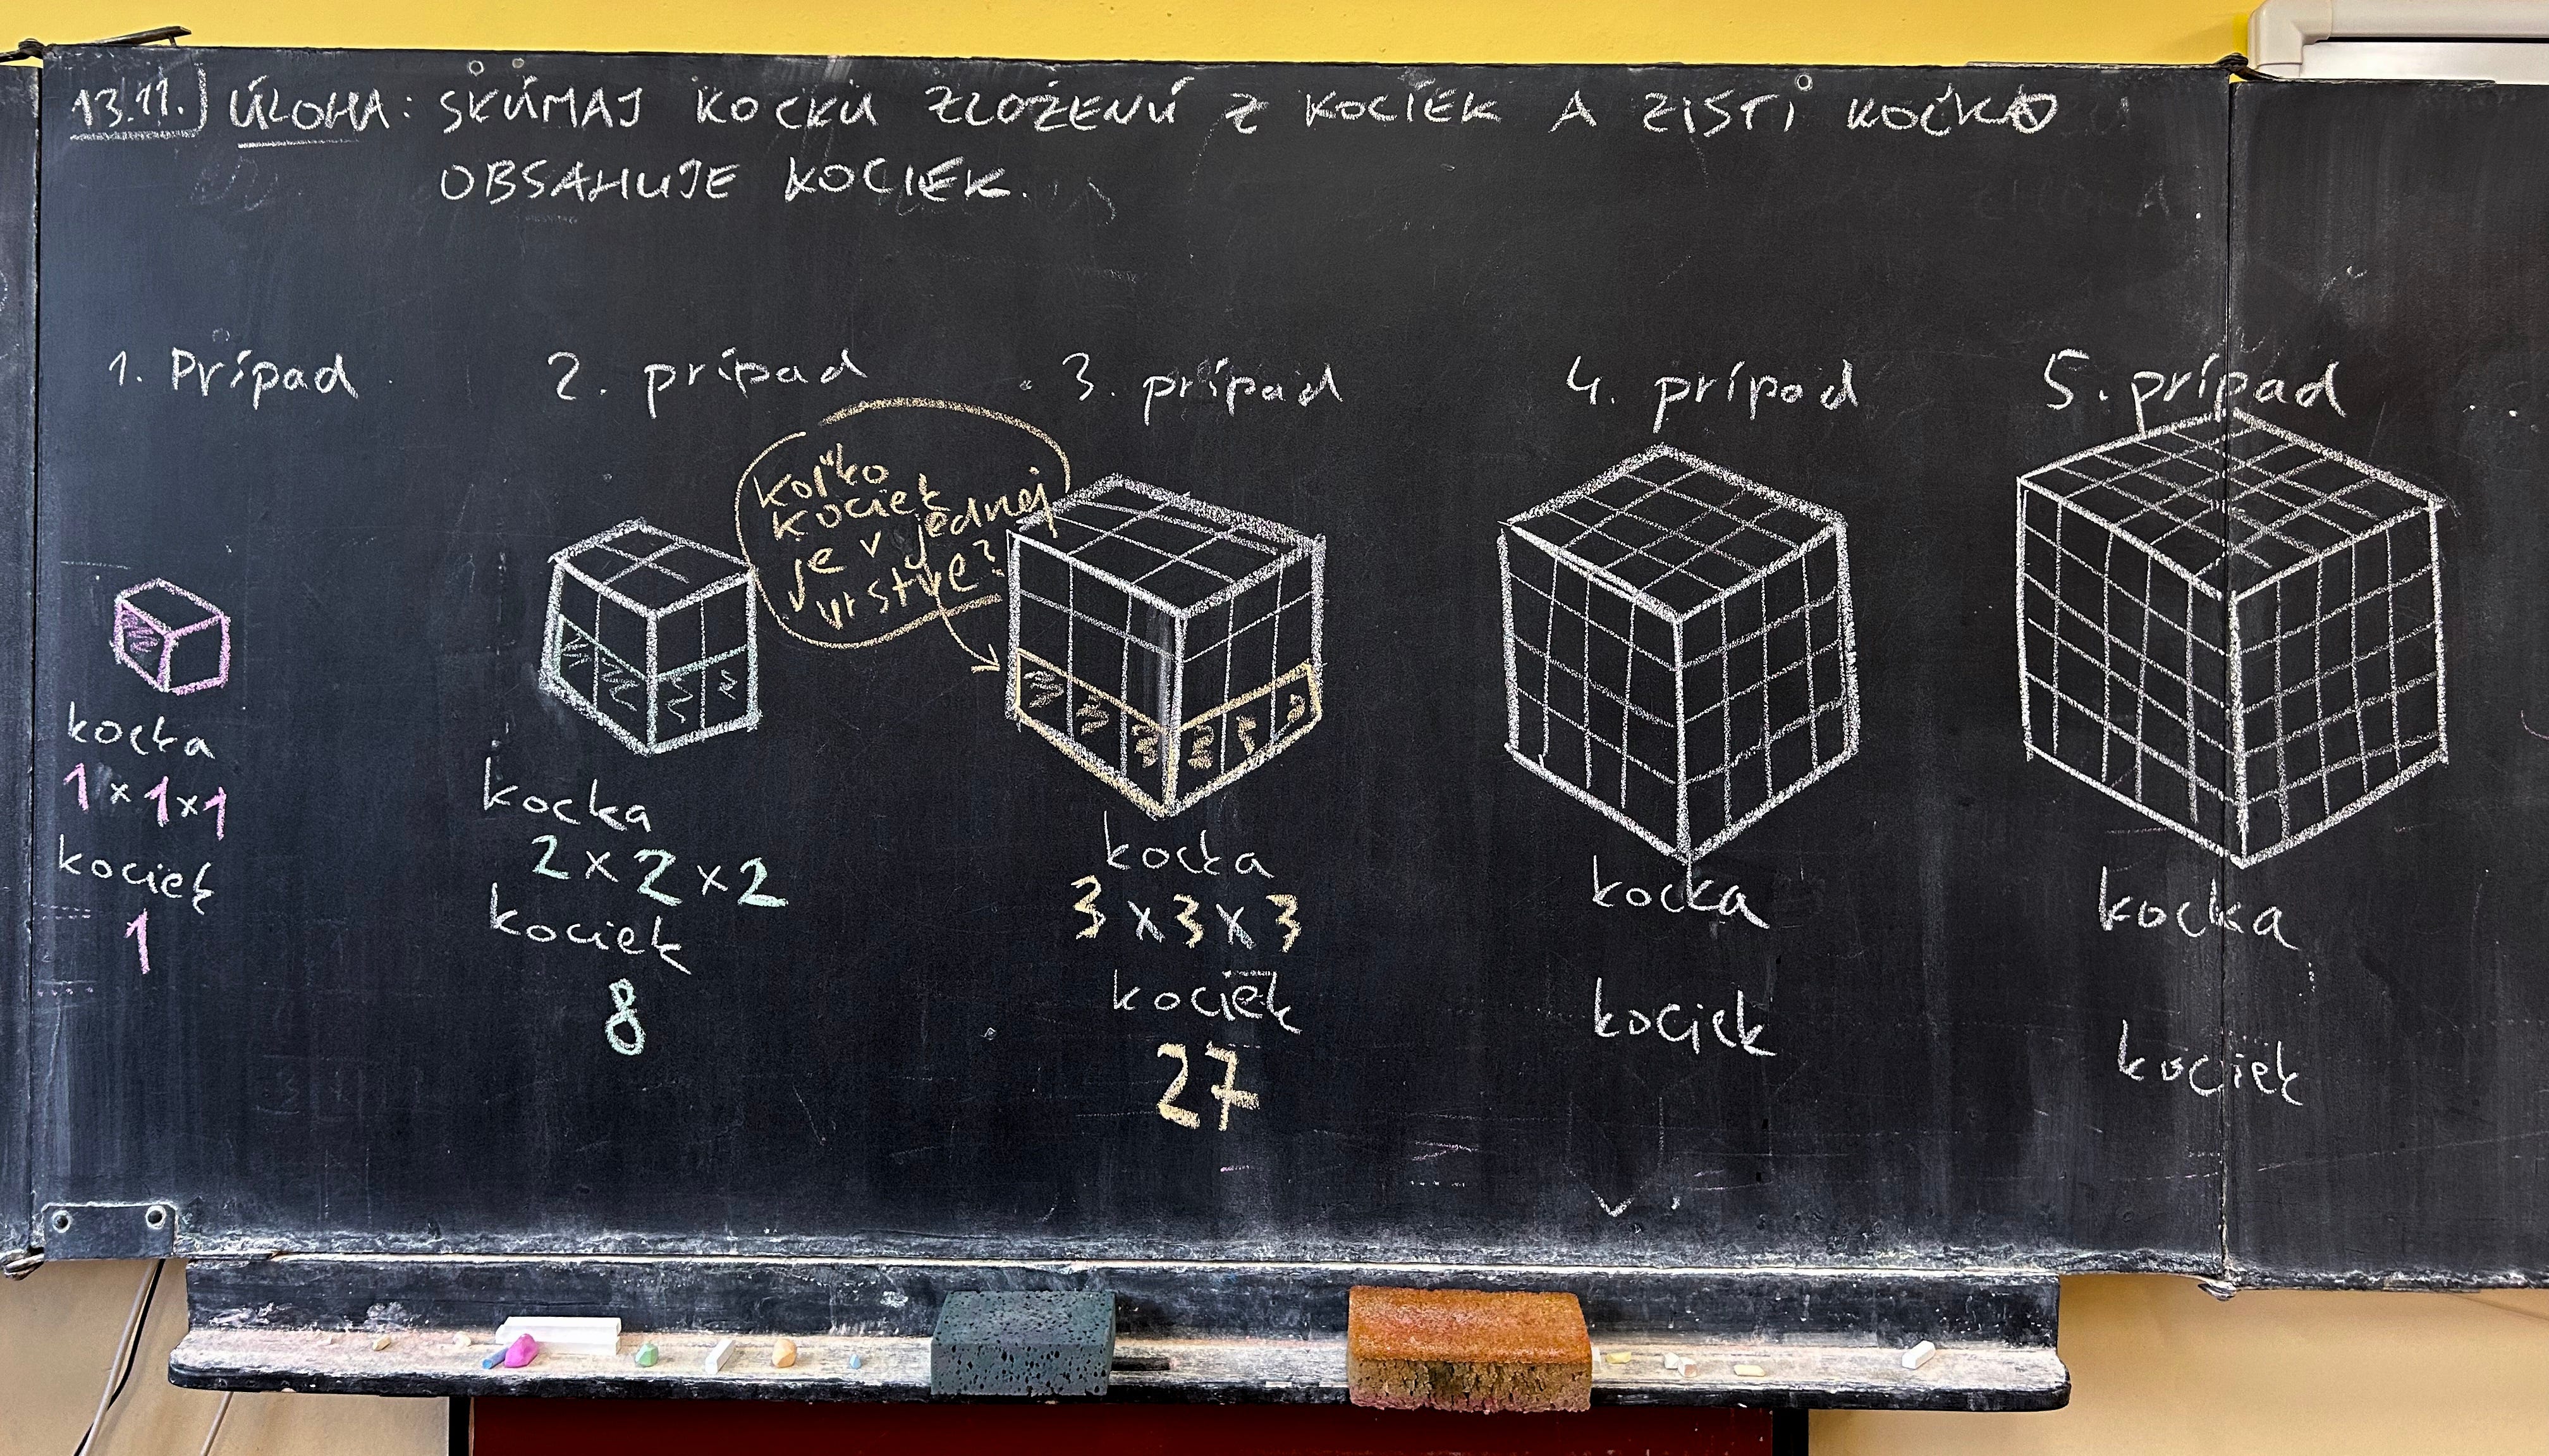 13.11. ÚLOHA: SKÚMAJ KOCKU ZLOŽENÚ Z KOCIEK A ZISTI KOĽKO
OBSAHUJE KOCIEK.
1. Prípad
2. prípad
3. prípad
4. prípad
5. prípad ...
koľko
kociek
je v jednej
vrstve?
kocka
1x1x1
kociek
1
kocka
2x2x2
kociek
8
kocka
3x3x3
kociek
27
kocka
kociek
kocka
kociek